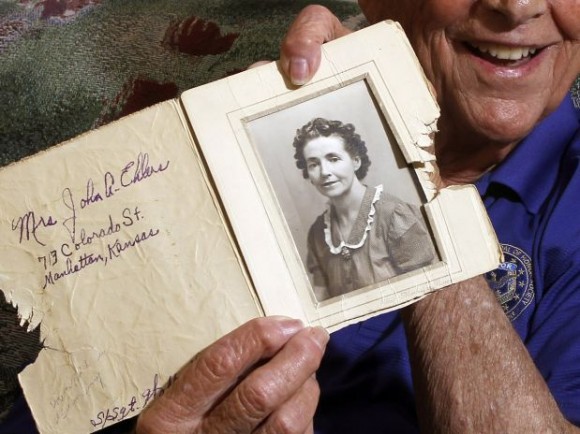 Mrs. John A. Ehlers
713 Colorado St.
Manhattan, Kansas
S/Sgt.